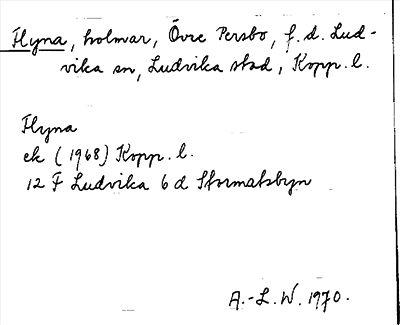 Flyna, holmar, Övre Persbo, f.d. Lud-
vika sn, Ludvika stad, Kopp. l.
Flyna
ek (1968) Kopp. l.
12 F Ludvika 6 d Stormatsbyn
A.-L. W. 1970.